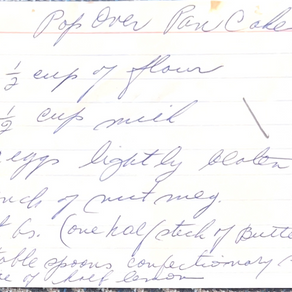 Pop Over Pan Cake
½ cup of flour
½ cup milk
eggs lightly beaten
nch of nut meg.
(one half stick of Butte
table spoons confectionary
of half lemon